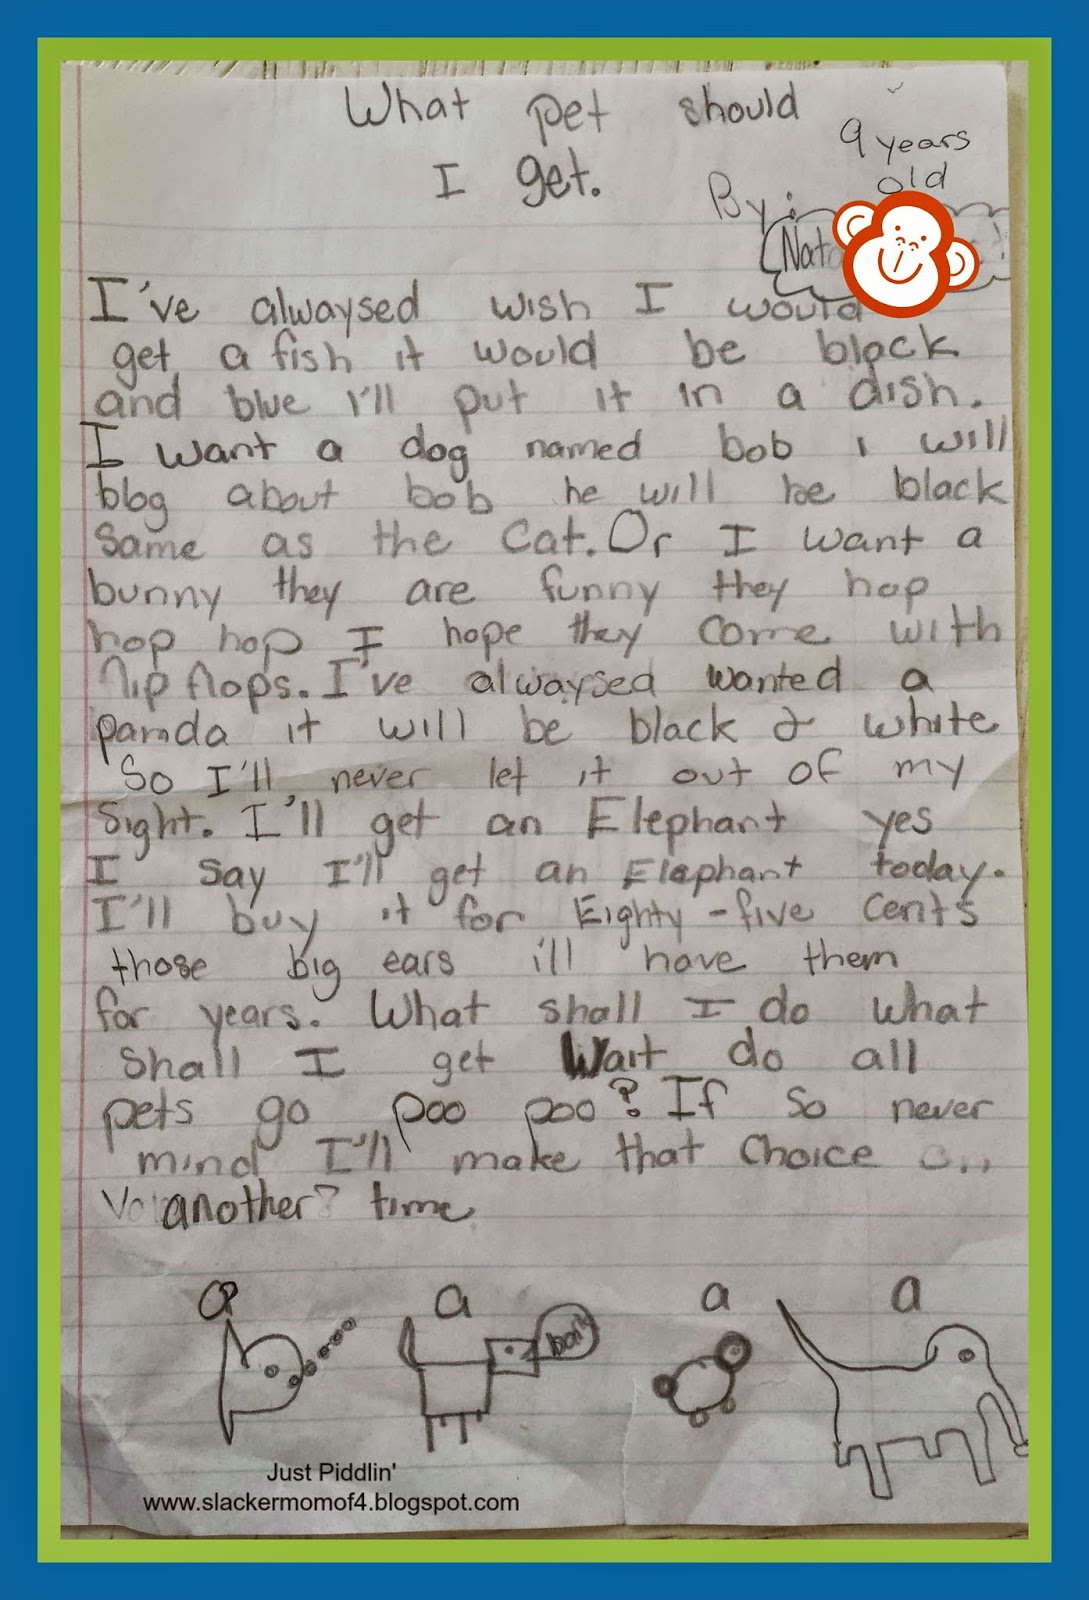 What pet should
I get.
9 years
old
By:
I've alwaysed wish I would
get a fish it would be black
and blue I'll put it in a dish.
I want a dog named bob i will
blog about bob he will be black
Same as the Cat. Or I want a
bunny they are funny they hop
hop hop I hope they come with
flip flops. I've alwaysed wanted a
panda it will be black & white
So I'll never let it out of my
Sight. I'll get an Elephant yes
I say I'll get an Elephant today.
I'll buy it for Eighty-five Cents
those big ears i'll have them
for years. What shall I do what
Shall I get Wait do all
pets go poo poo? If so never
mind I'll make that Choice
another time
a a a a
Just Piddlin'
www.slackermomof4.blogspot.com